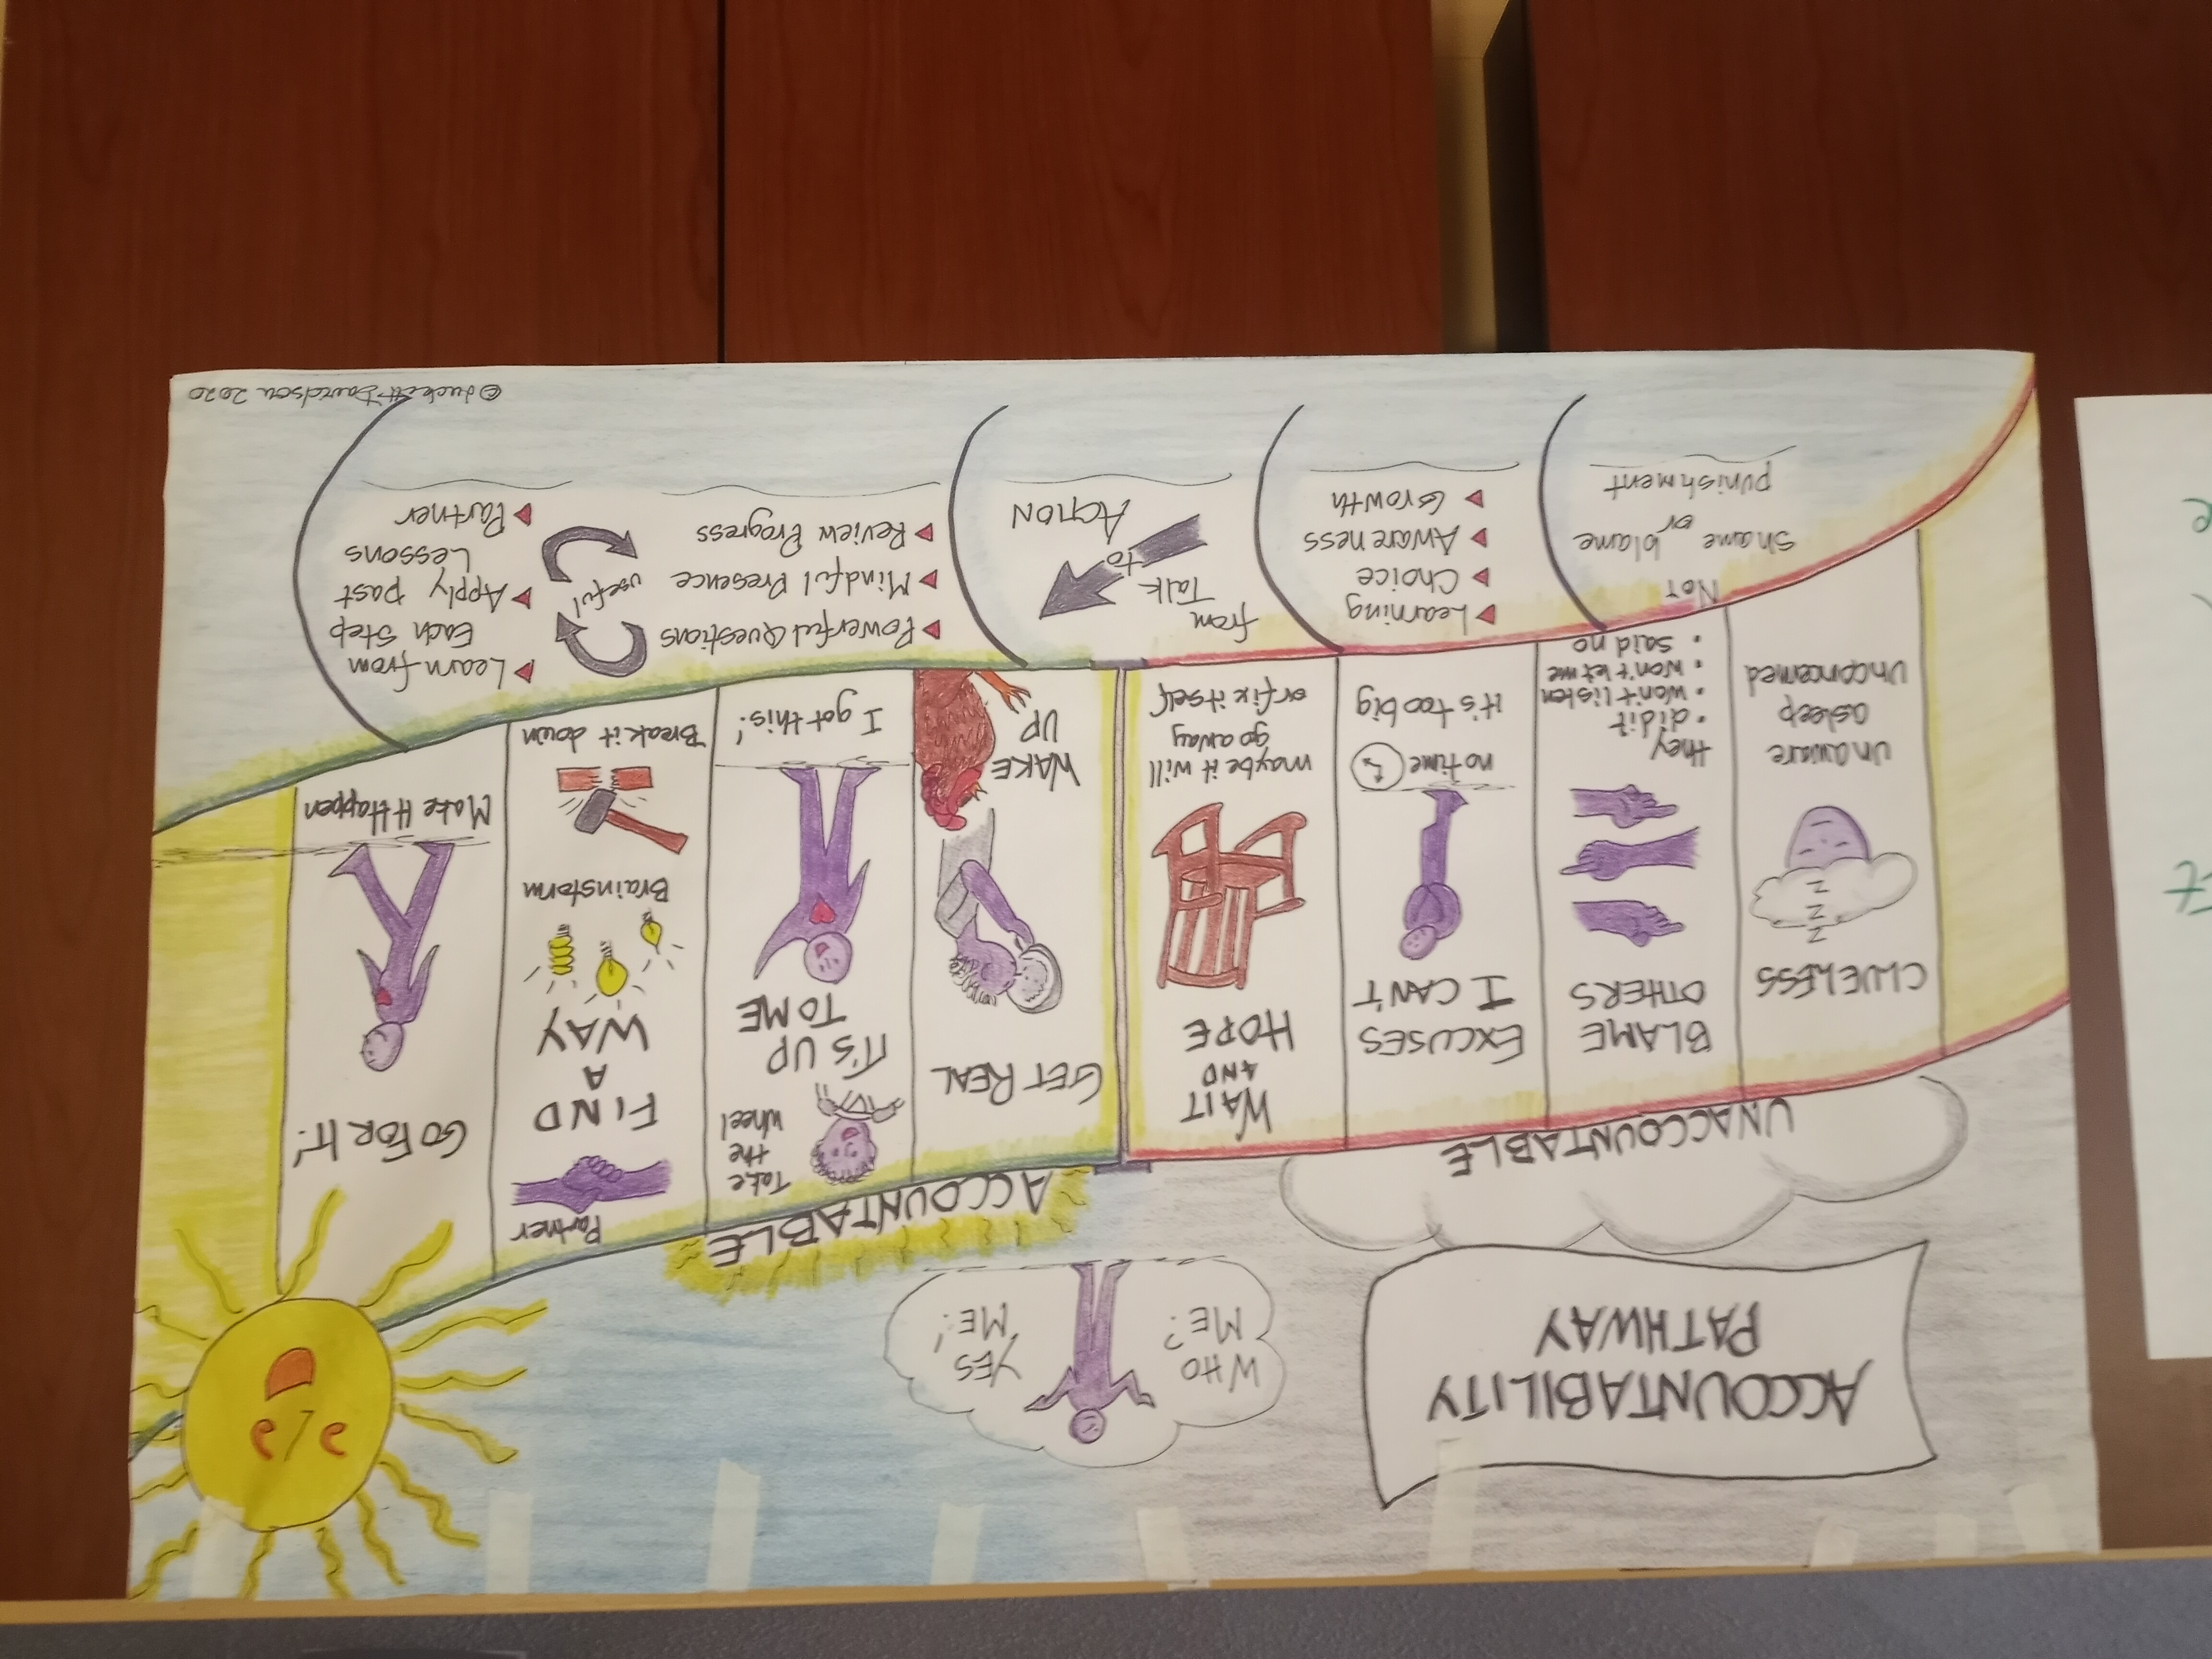 ACCOUNTABILITY
PATHWAY
WHO
ME?
YES
ME!
UNACCOUNTABLE
ACCOUNTABLE
CLUELESS
Z
Z
Z
unaware
asleep
unconcerned
BLAME
OTHERS
they
• did it
• won't listen
• won't let me
• said no
EXCUSES
I CAN'T
no time
it's too big
WAIT
AND
HOPE
maybe it will
go away
or fix itself
GET REAL
WAKE
UP
Take
the
wheel
IT'S UP
TO ME
I got this!
Partner
FIND
A
WAY
Brainstorm
Break it down
GO FOR IT!
Make It Happen
NOT
shame or blame
punishment
Learning
Choice
Awareness
Growth
from
Talk
to
ACTION
Powerful Questions
Mindful Presence
Review Progress
useful
Learn from
Each Step
Apply past
Lessons
Partner
©Luckett Davidson 2020
t
e